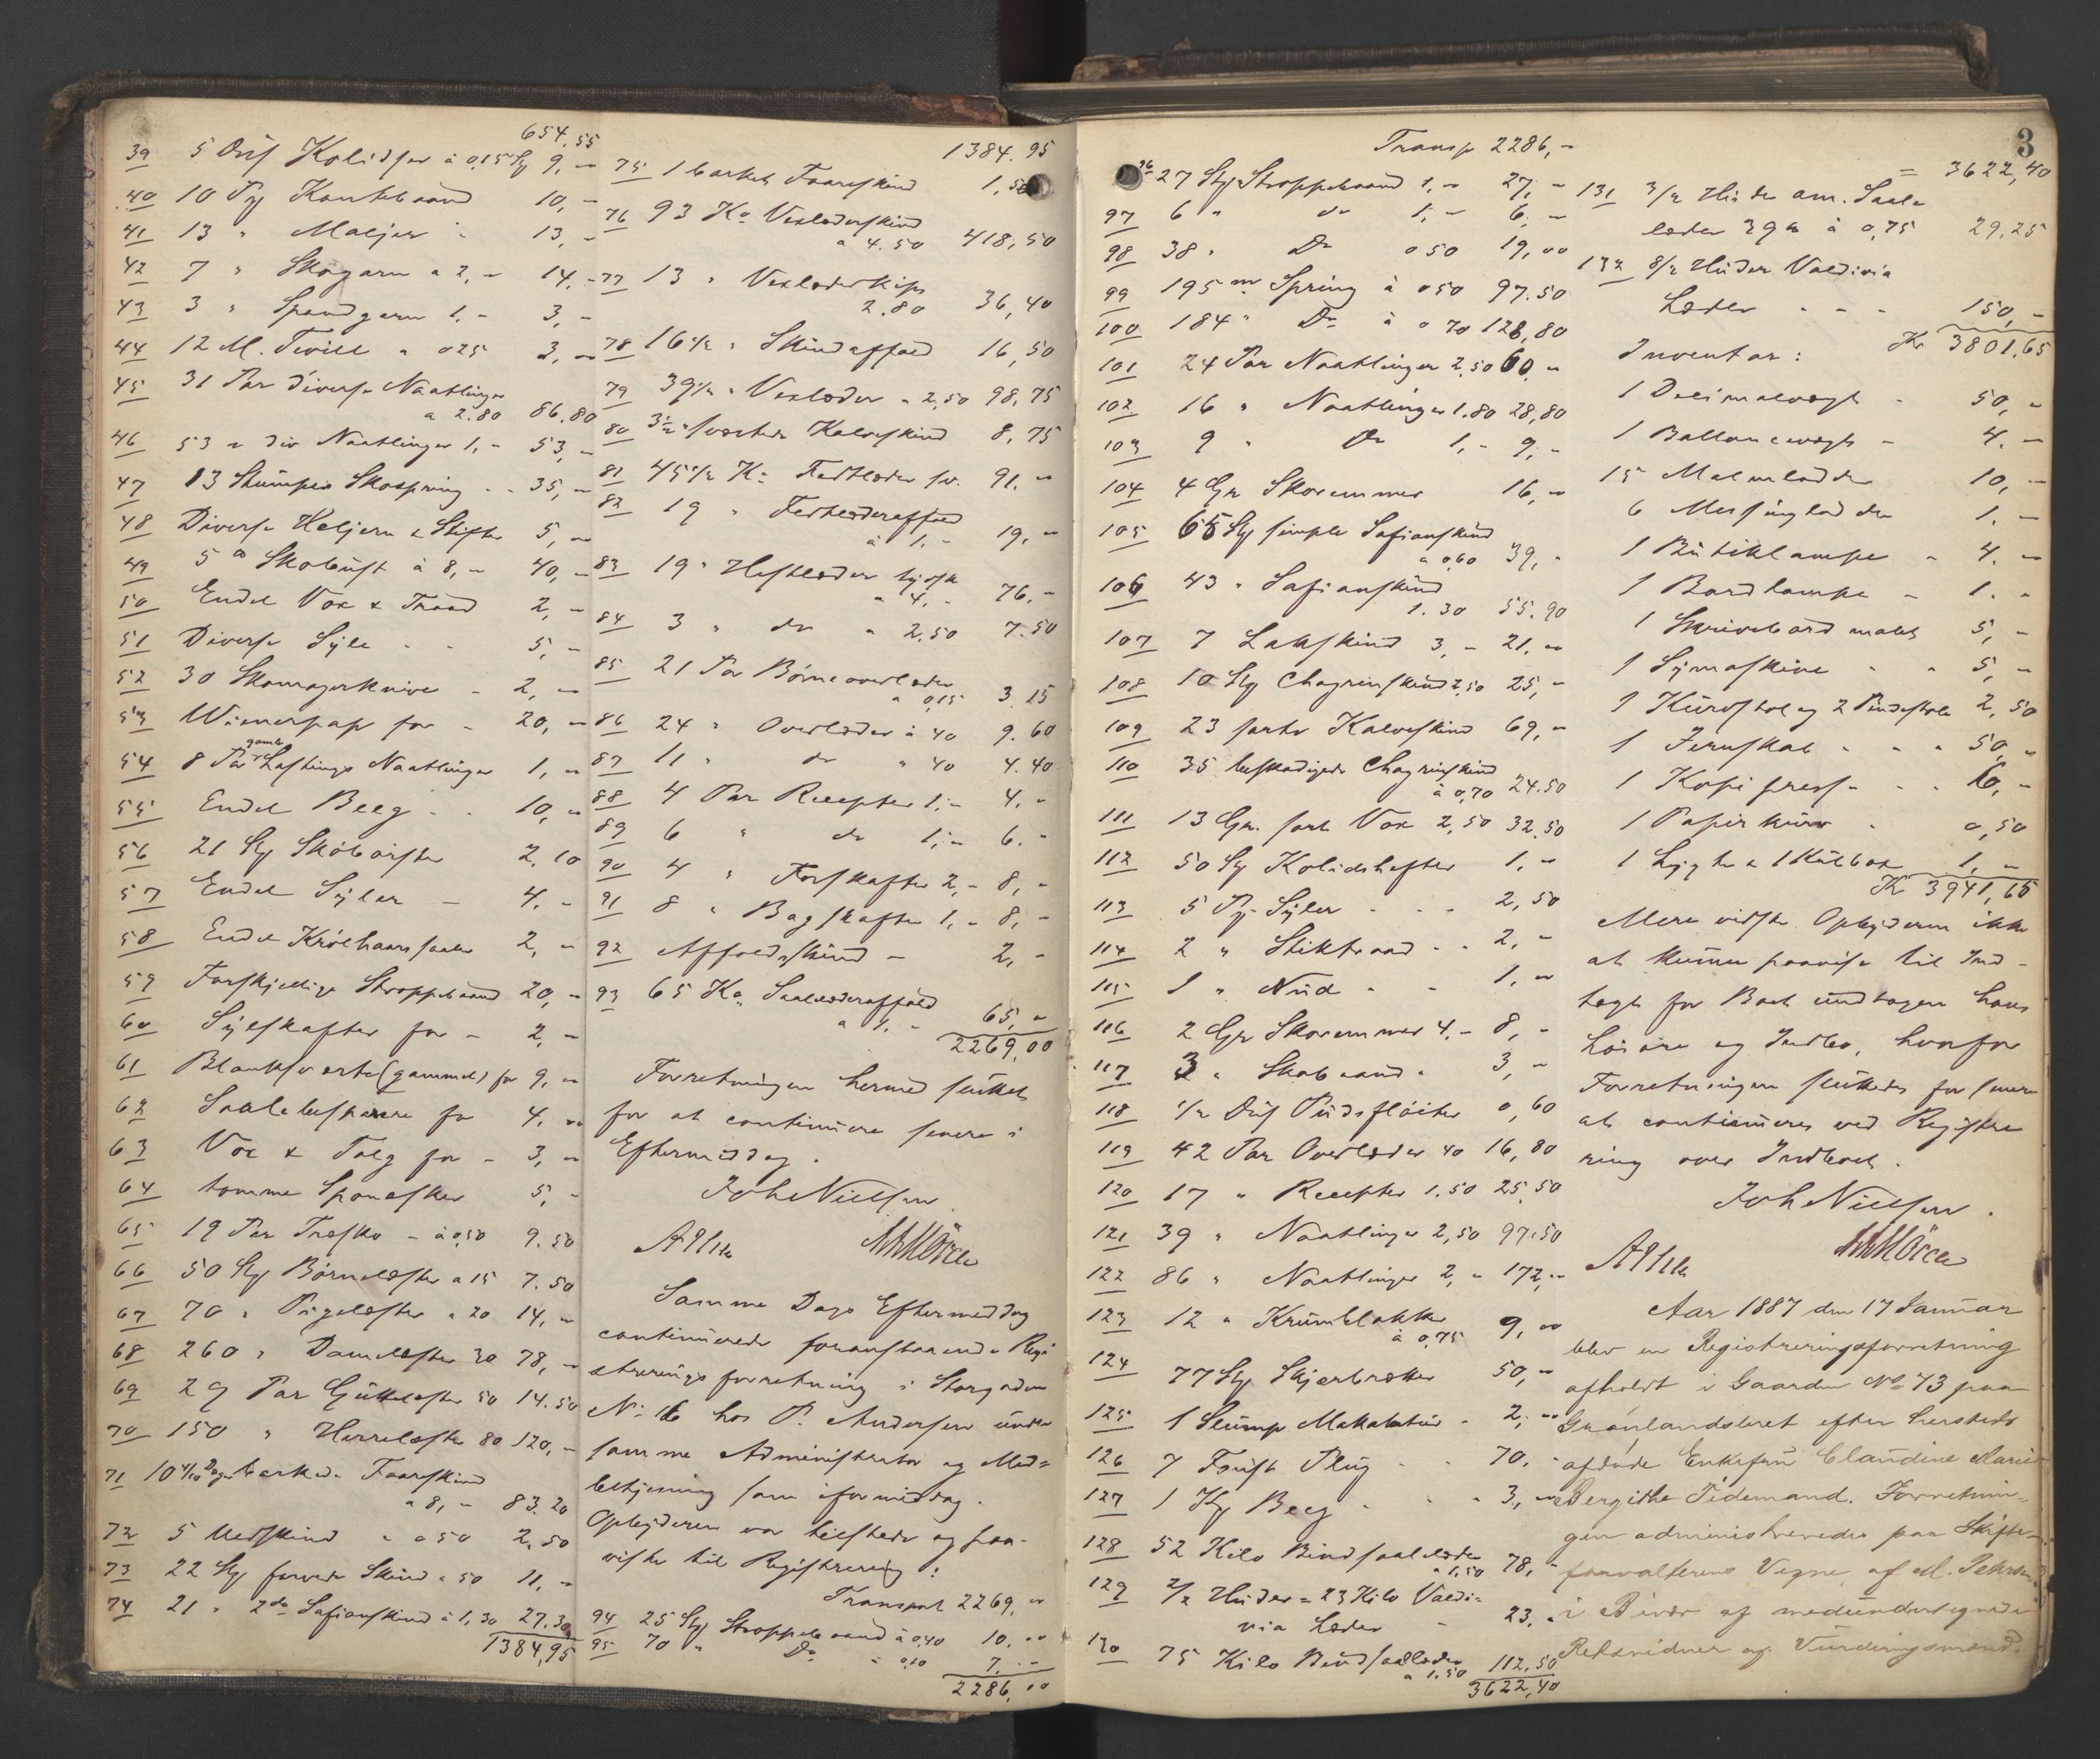 654,55
39 5 Dus Kolidser à 0,15 Sty 9, -
40 10 Pg Kantebaand 10, -
41 13 " Maljer - 13, -
42 7 " Skogarn a 2, - 14, -
43 3 " Spandgarn 1. - 3, -
44 12 M. Twill a 025 3, -
45 31 Par diverse Naatlinger
a 2.80 86,80
46 53 " div Naatlinger 1, - 53, -
47 13 Stumper Skospring - - 35, -
48 Diverse Heljern & Stifter 5, -
49 5 Skobust à 8, - 40, -
50 Endel Vox & Traad 2, -
51 Diverse Syle - - 5, -
52 30 Skomagerknive - 2, -
53 Wienerpap for - 20, -
54 8 Par gamle Lastings Naatlinger 1, -
55 Endel Beeg - - 10, -
56 21 Sty Skobørster 2.10
57 Endel Syler - 4. -
58 Endel Krølhaarssaaler 2, -
59 Forskjellige Stroppebaand 20, -
60 Sylskafter for - 2, -
61 Blanksværte (gammel) for 9, -
62 Saalebesparere for 4, -
63 Vox & Talg for - 3, -
64 tomme Sponesker 5, -
65 19 Par Træsko - à 0,50 9.50
66 50 Sty Børnelæster a 15 7.50
67 70 " Pigelæster a 20 14, -
68 260 " Damelæster 30 78, -
69 29 Par Guttelæster 50 14.50
70 150 " Herrelæster 80 120, -
71 10 4/10 Deger barkede Faareskind
a 8, - 83.20
72 5 Uedskind a 0 50 2,50
73 22 Sty farvede Skind a 50 11, -
74 21 " 2da Safianskind à 1,30 27.30
1384,95
1384.95
75 1 barket Faareskind 1,50
76 93 Ko Vexlæderskind
a 4.50 418,50
77 13 " Vexlæderkips
2.80 36,40
78 16 1/2 " Skindaffald 16,50
79 39 1/2 " Vexlæder a 2,50 98,75
80 3 1/2 " sværtede Kalveskind 8,75
81 45 1/2 Ko Fedtlæder sv. 91. -
82 19 " Fedtlæderaffald
à 1. - 19, -
83 19 " Hestlæder tydsk
a 4. - 76, -
84 3 " do a 2.50 7.50
85 21 Par Børneoverlæder
a 0,15 3.15
86 24 " Overlæder à 40 9.60
87 11 " do " 40 4.40
88 4 Par Recepter 1, - 4. -
89 6 " do 1, - 6. -
90 4 " Forskafter 2, - 8, -
91 8 " Bagskafter 1, - 8, -
92 Affaldsskind - 2, -
93 65 Ko Saalelæderaffald
a 1. - 65, -
2269,00
Forretningen hermed sluttet
for at continuere senere i
Eftermiddag.
Joh Nielsen
Samme Dags Eftermiddag
continuerede foranstaaende Regi
streringsforretning i Storgaden
No 16 hos P. Andersen under
samme Administrator og Med=
betjening som iformiddag.
Opbyderen var tilstede og paa-
viste til Registrering:
Transport 2269, -
94 25 Sty Stroppebaand à 0,40 10. -
95 70 " Do " 0,10 7. -
2286, 00
3
Transp 2286, -
96 27 Sty Stroppebaand 1, - 27, -
97 6 " do 1, - 6, -
98 38 " Do 0 50 19,00
99 195 m Spring à 0 50 97.50
100 184 " Do à 0 70 128,80
101 24 Par Naatlinger 2,50 60, -
102 16 " Naatlinger 1.80 28,80
103 9 " Do 1, - 9, -
104 4 Gr Skoremmer 16, -
105 65 Sty simple Safianskind
a 0,60 39, -
106 43 " Safianskind
1.30 55.90
107 7 Lakskind 3, - 21. -
108 10 Sty Chagrinskind 2,50 25, -
109 23 sorte Kalveskind 69, -
110 35 beskadigede Chagrinskind
à 0,70 24.50
111 13 Gr. sort Vox 2,50 32.50
112 50 Sty Kolidshefter 1, -
113 5 Pg. Syler - - - 2,50
114 2 " Stiktraad - - 2, -
115 1 " Nud - - 1, -
116 2 Gr Skoremmer 4. - 8, -
117 3 " Skobaand " 3, -
118 1/2 Dus Pudsfløiter 0,60
119 42 Par Overlæder 40 16,80
120 17 " Recepter 1.50 25,50
121 39 " Naatlinger 2,50 97.50
122 86 " Naatlinger 2, - 172, -
123 12 " Krumblokke
à 0,75 9, 00
124 77 Sty Skjærbrætter 50, -
125 1 Slump Makulatur - 2, -
126 7 Foust Plug - - 70, -
127 1 Kg Beeg - - - 3, -
128 52 Kilo Bindsaalelæder
a 1,50 78, -
129 2/2 Huder = 23 Kilo Valdi=
via Læder - 23, -
130 75 Kilo Bindsaalelæder
a 1.50 112,50
3622,40
= 3622,40
131 3/2 Huder am. Saale
læder 39 K à 0,75 29,25
132 8/2 Huder Valdivia
Læder - - - 150, -
Kr 3801,65
Inventar:
1 Decimalvægt - 50, -
1 Ballancevægt - 4. -
15 Malmlodder 10, -
6 Messinglodder 1. -
1 Butiklampe - 4. -
1 Bordlampe - 1. -
1 Skrivebord malet 5, -
1 Symaskine - - 5, -
1 Kurvstol og 2 Pindestole 2,50
1 Jernskab - - - 50, -
1 Kopipresse - - 6, -
1 Papirkurv - 0,50
1 Lygte & 1 Kulbox 1, -
Kr 3941,65
Mere vidste Opbyderen ikke
at kunne paavise til Ind-
tægt for Boet undtagen hans
Løsøre og Indbo, hvorfor
Forretningen sluttedes for senere
at continueres ved Registre
ring over Indboet.
Joh Nielsen.
Aar 1887 den 17 Januar
blev en Registreringsforretning
afholdt i Gaarden No 73 paa
Grønlandsleret efter hersteds
afdøde Enkefru Claudine Marie
Bergithe Tidemand. Forretnin=
gen administreredes paa Skifte-
forvalterens Vegne af M. Petersen
i Bivær af medundertegnede
Retsvidner og Vurderingsmænd.